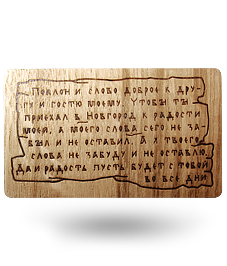 Поклон и слово доброе к дру-
гу и гостю моему. Чтобы ты
приехал в Новгород к радости
моей, а моего слова сего не за-
был и не оставил. А я твоего
слова не забуду и не оставлю.
Да и радость пусть будет с тобой
во все дни